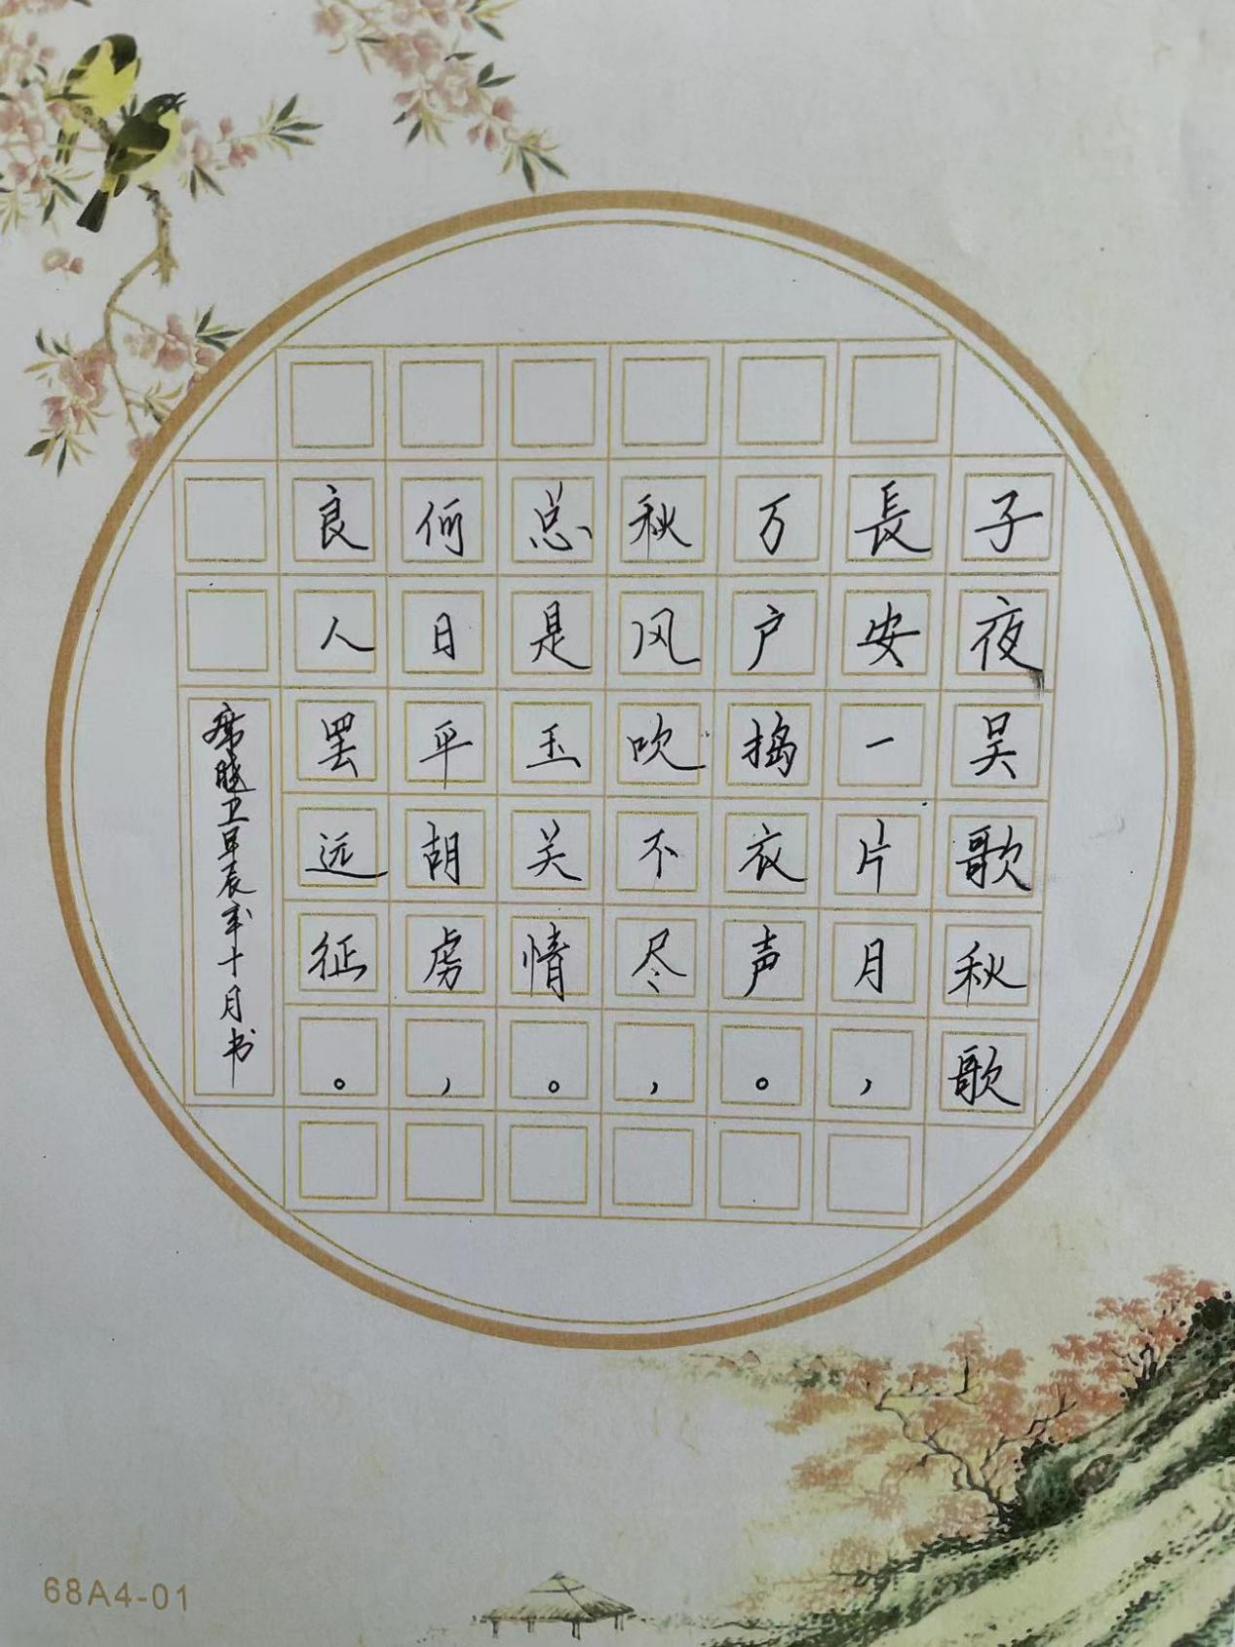 子夜吴歌秋歌
長安一片月，
万户捣衣声。
秋风吹不尽，
总是玉关情。
何日平胡虏，
良人罢远征。
席晓卫辛丑年十月书
68A4-01